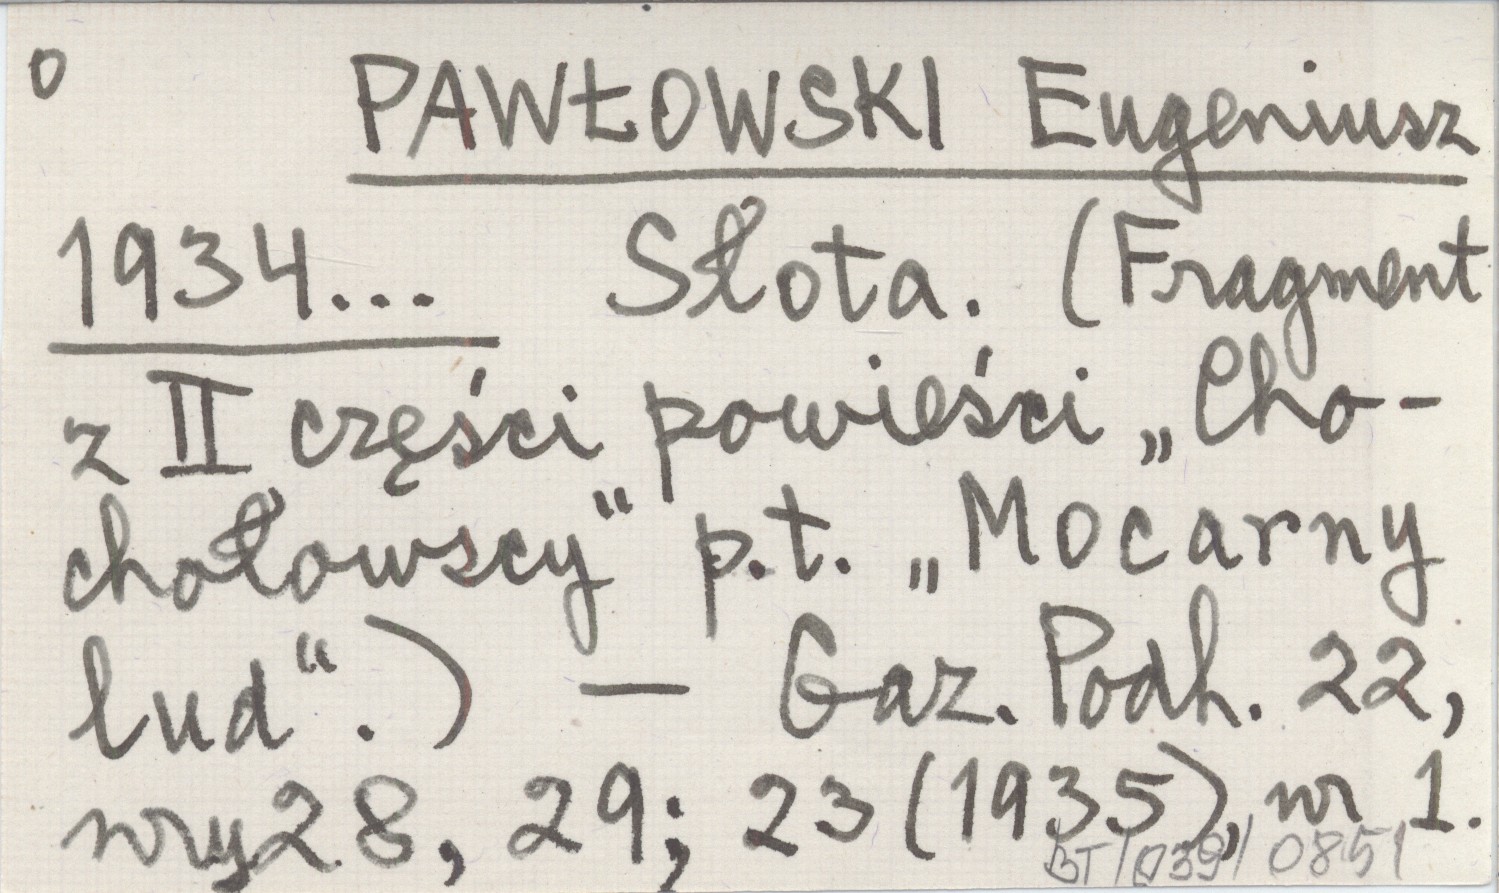 o PAWŁOWSKI Eugeniusz
1934... Słota. (Fragment
z II części powieści „Cho-
chołowscy" p.t. „Mocarny
lud".) — Gaz. Podh. 22,
nry 28, 29; 23 (1935), nr 1.
BT/039/0851